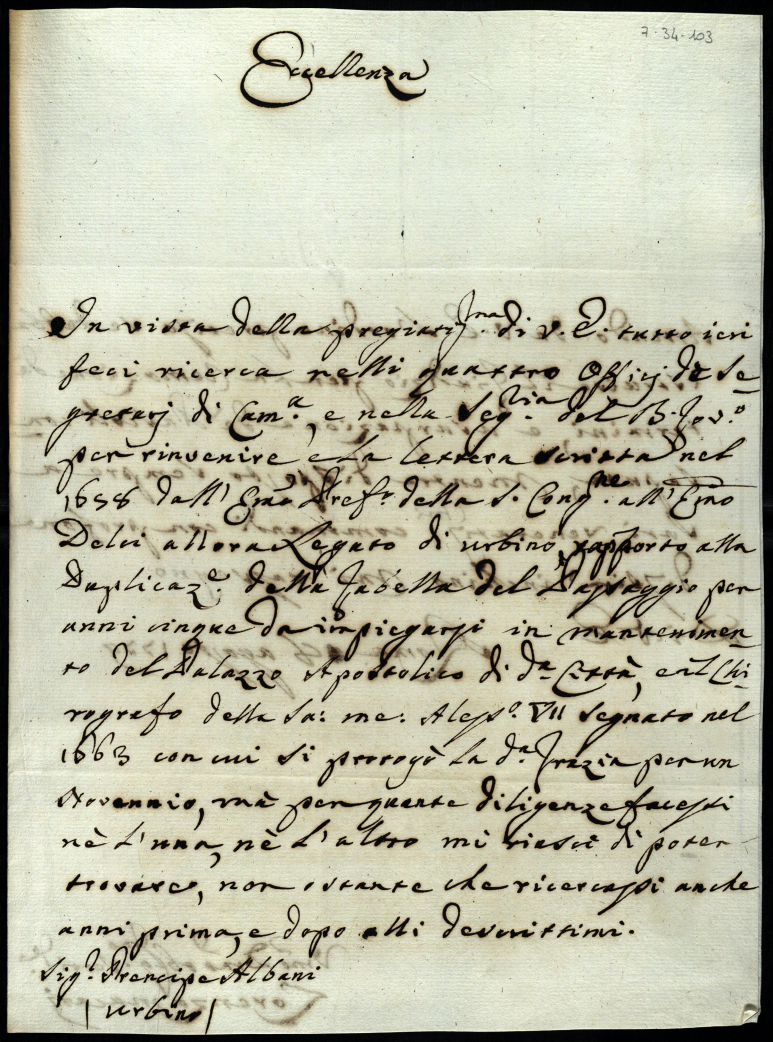 7-34-103
Eccellenza
In vista della pregiatiss.ma di V. E. tutto ieri
feci ricerca nelli quattro Officij de Se=
gretarj di Cam.a, e nella Seg.ria del B. Gov.o
per rinvenire e la lettera scritta nel
1658 dall' Emo Pref.o della S. Cong.ne all' Emo
Delci allora Legato di Urbino rapporto alla
Duplicaz.e della Gabella del Passaggio per
anni cinque da impiegarsi in mantenimen=
to del Palazzo Apostolico di d.a Città, e il Chi=
rografo della Sa: me: Aless.o VII segnato nel
1663 con cui si prorogò la d.a Grazia per un
Novennio, mà per quante diligenze facessi
nè l'una, nè l'altro mi riuscì di poter
trovare, non ostante che ricercassi anche
anni prima, e dopo alli descrittimi.
Sig.r Prencipe Albani
/ Urbino /